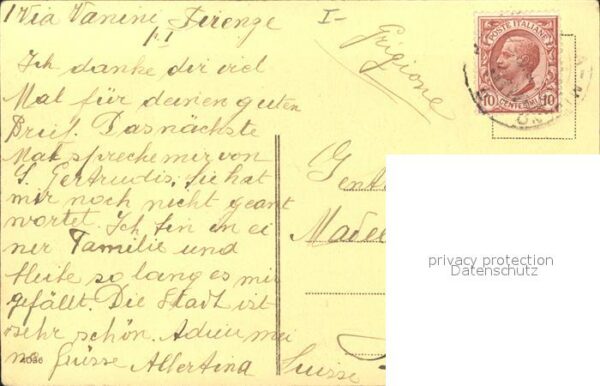 1 Via Vanini, Firenze
I-
Ich danke dir viel
Mal für deinen guten
Brief. Das nächste
Mal spreche mir von
S. Gertrudis, sie hat
mir noch nicht geant
wortet. Ich bin in ei
ner Familie und
bleibe so lang es mir
gefällt. Die Stadt ist
sehr schön. Adieu mei
ne Grüsse Albertina
Grigione
POSTE ITALIANE
10 CENTESIMI 10
MILANO
Genti
Made
Suisse
privacy protection
Datenschutz